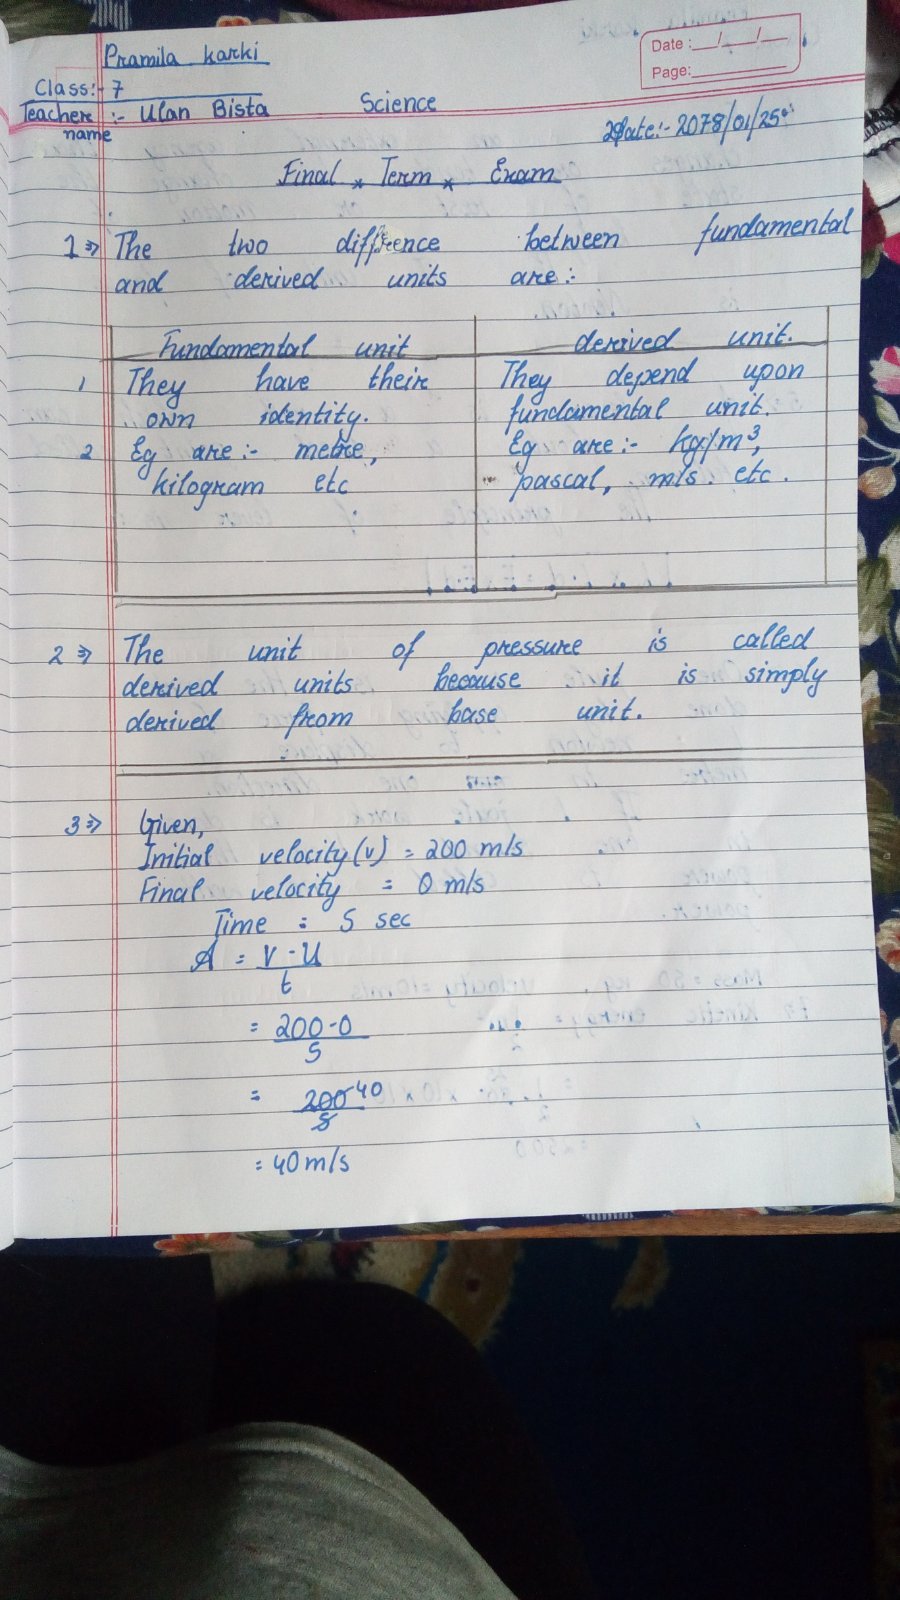 Pramila Karki
Date :__/__/__
Page:________
Class:- 7
Teacher :- Ulan Bista Science
name
Date:- 2078/01/25
Final * Term * Exam
1 => The two difference between fundamental
and derived units are:-
Fundamental unit derived unit.
1 They have their own identity. They depend upon fundamental unit.
2 Eg are:- metre, kilogram etc Eg are:- kg/m³, pascal, m/s. etc.
2 => The unit of pressure is called
derived units because it is simply
derived from base unit.
3 => Given,
Initial velocity (v) = 200 m/s
Final velocity = 0 m/s
Time = 5 sec
A = V - U
t
= 200 - 0
5
= 200 40
5
= 40 m/s